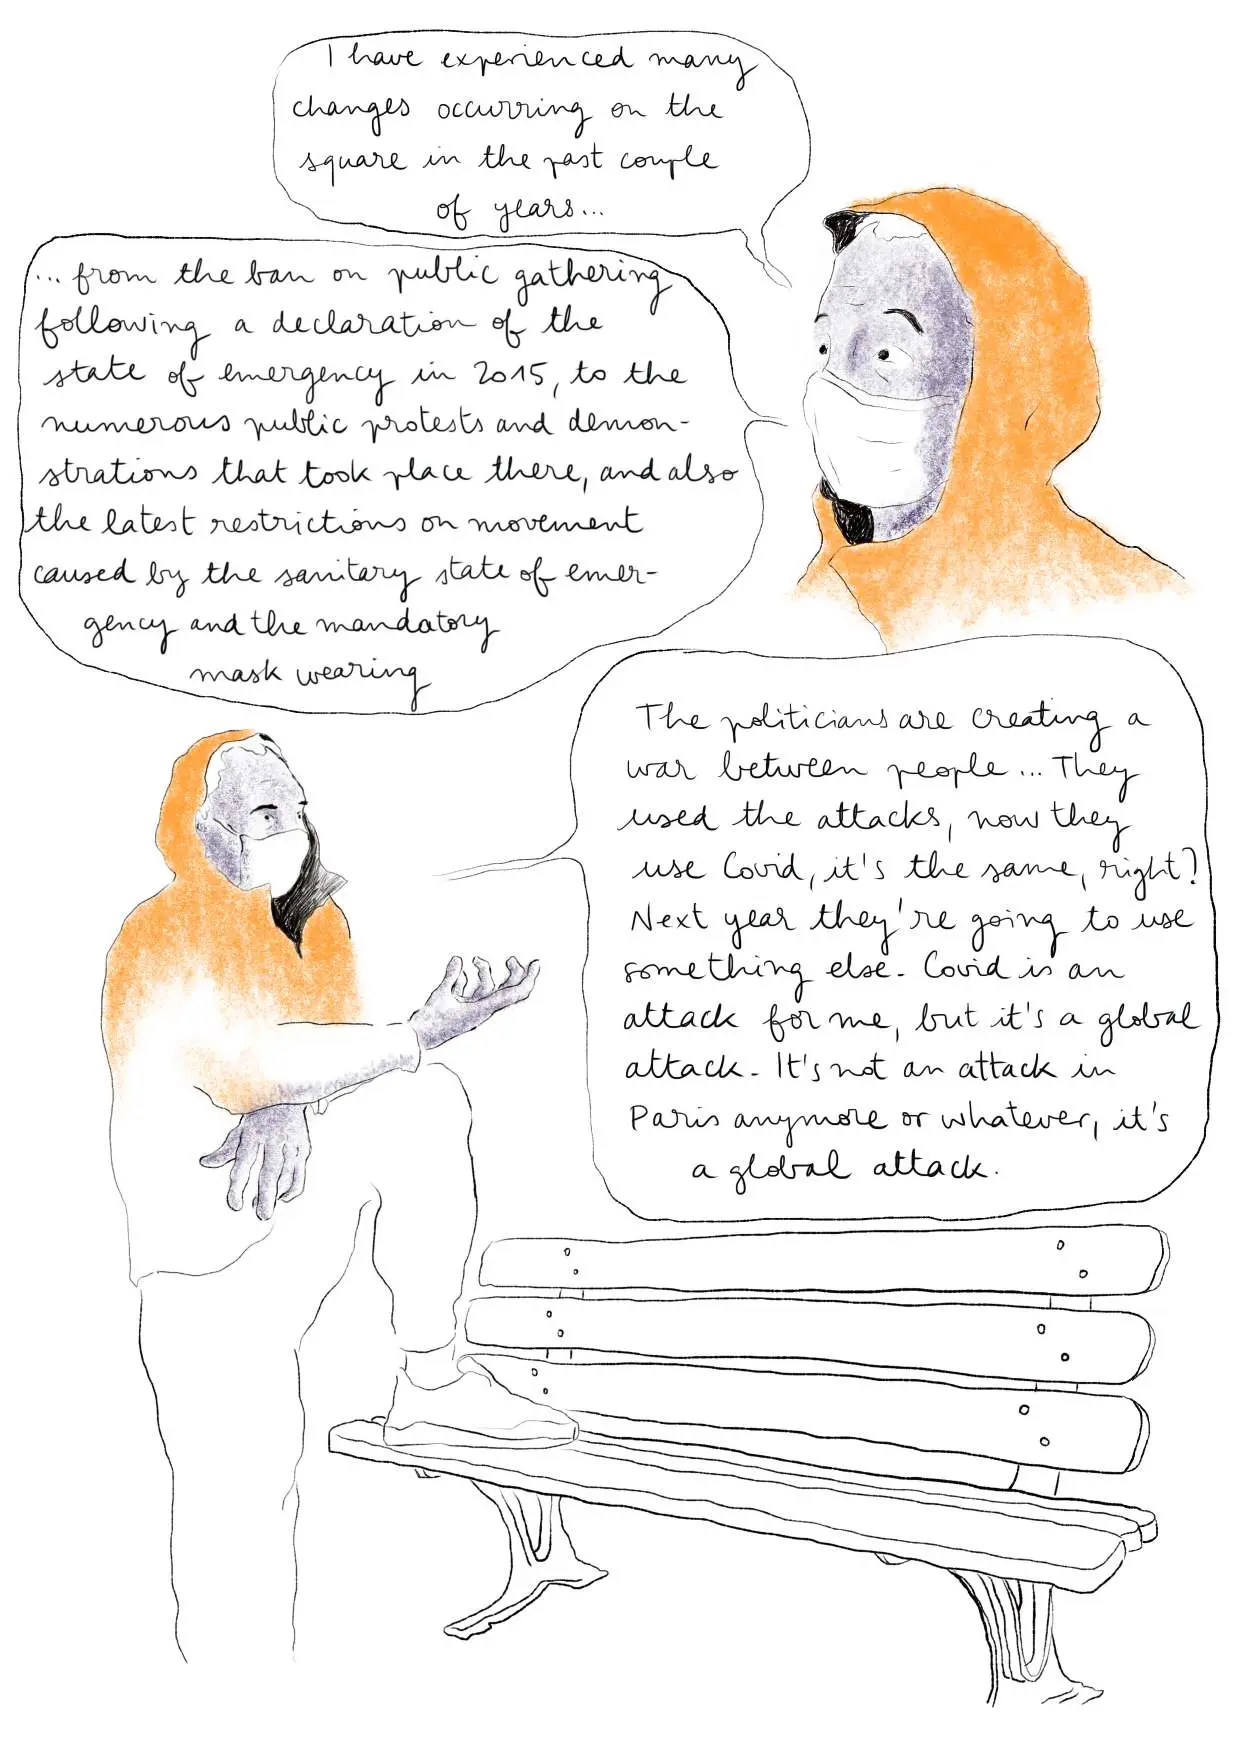 I have experienced many
changes occurring on the
square in the past couple
of years...
... from the ban on public gathering
following a declaration of the
state of emergency in 2015, to the
numerous public protests and demon-
strations that took place there, and also
the latest restrictions on movement
caused by the sanitary state of emer-
gency and the mandatory
mask wearing
The politicians are creating a
war between people... They
used the attacks, now they
use Covid, it's the same, right?
Next year they're going to use
something else. Covid is an
attack for me, but it's a global
attack. It's not an attack in
Paris anymore or whatever, it's
a global attack.